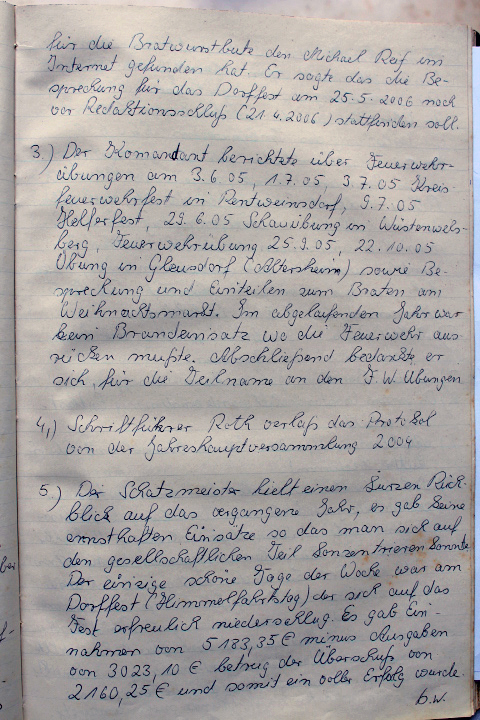 für die Bratwurstbute den Michael Reif im
Internet gefunden hat. Er sagte das die Be-
sprechung für das Dorffest am 25.5.2006 noch
vor Redaktionsschluß (21.4.2006) stattfinden soll.
3.) Der Komandant berichtete über Feuerwehr-
übungen am 3.6.05, 1.7.05, 3.7.05 Kreis-
feuerwehrfest in Rentweinsdorf, 9.7.05
Helferfest, 29.6.05 Schauübung in Wüstenwels-
berg, Feuerwehrübung 25.9.05, 22.10.05
Übung in Gleusdorf (Altersheim) sowie Be-
sprechung und Einteilen zum Braten am
Weihnachtsmarkt. Im abgelaufenden Jahr war
kein Brandeinsatz wo die Feuerwehr aus-
rücken mußte. Abschließend bedankte er
sich, für die Teilname an den F.W. Übungen
4.) Schriftführer Roth verlaß das Protokol
von der Jahreshauptversammlung 2004
5.) Der Schatzmeister hielt einen kurzen Rück-
blick auf das vergangene Jahr, es gab keine
ernsthaften Einsätze so das man sich auf
den gesellschaftlichen Teil konzentrieren konnte
Der einzige schöne Tage der Woche war am
Dorffest (Himmelfahrtstag) der sich auf das
Fest erfreulich niederschlug. Es gab Ein-
nahmen von 5183,35 € minus Ausgaben
von 3023,10 € betrug der Überschuß von
2160,25 € und somit ein voller Erfolg wurde.
b.w.